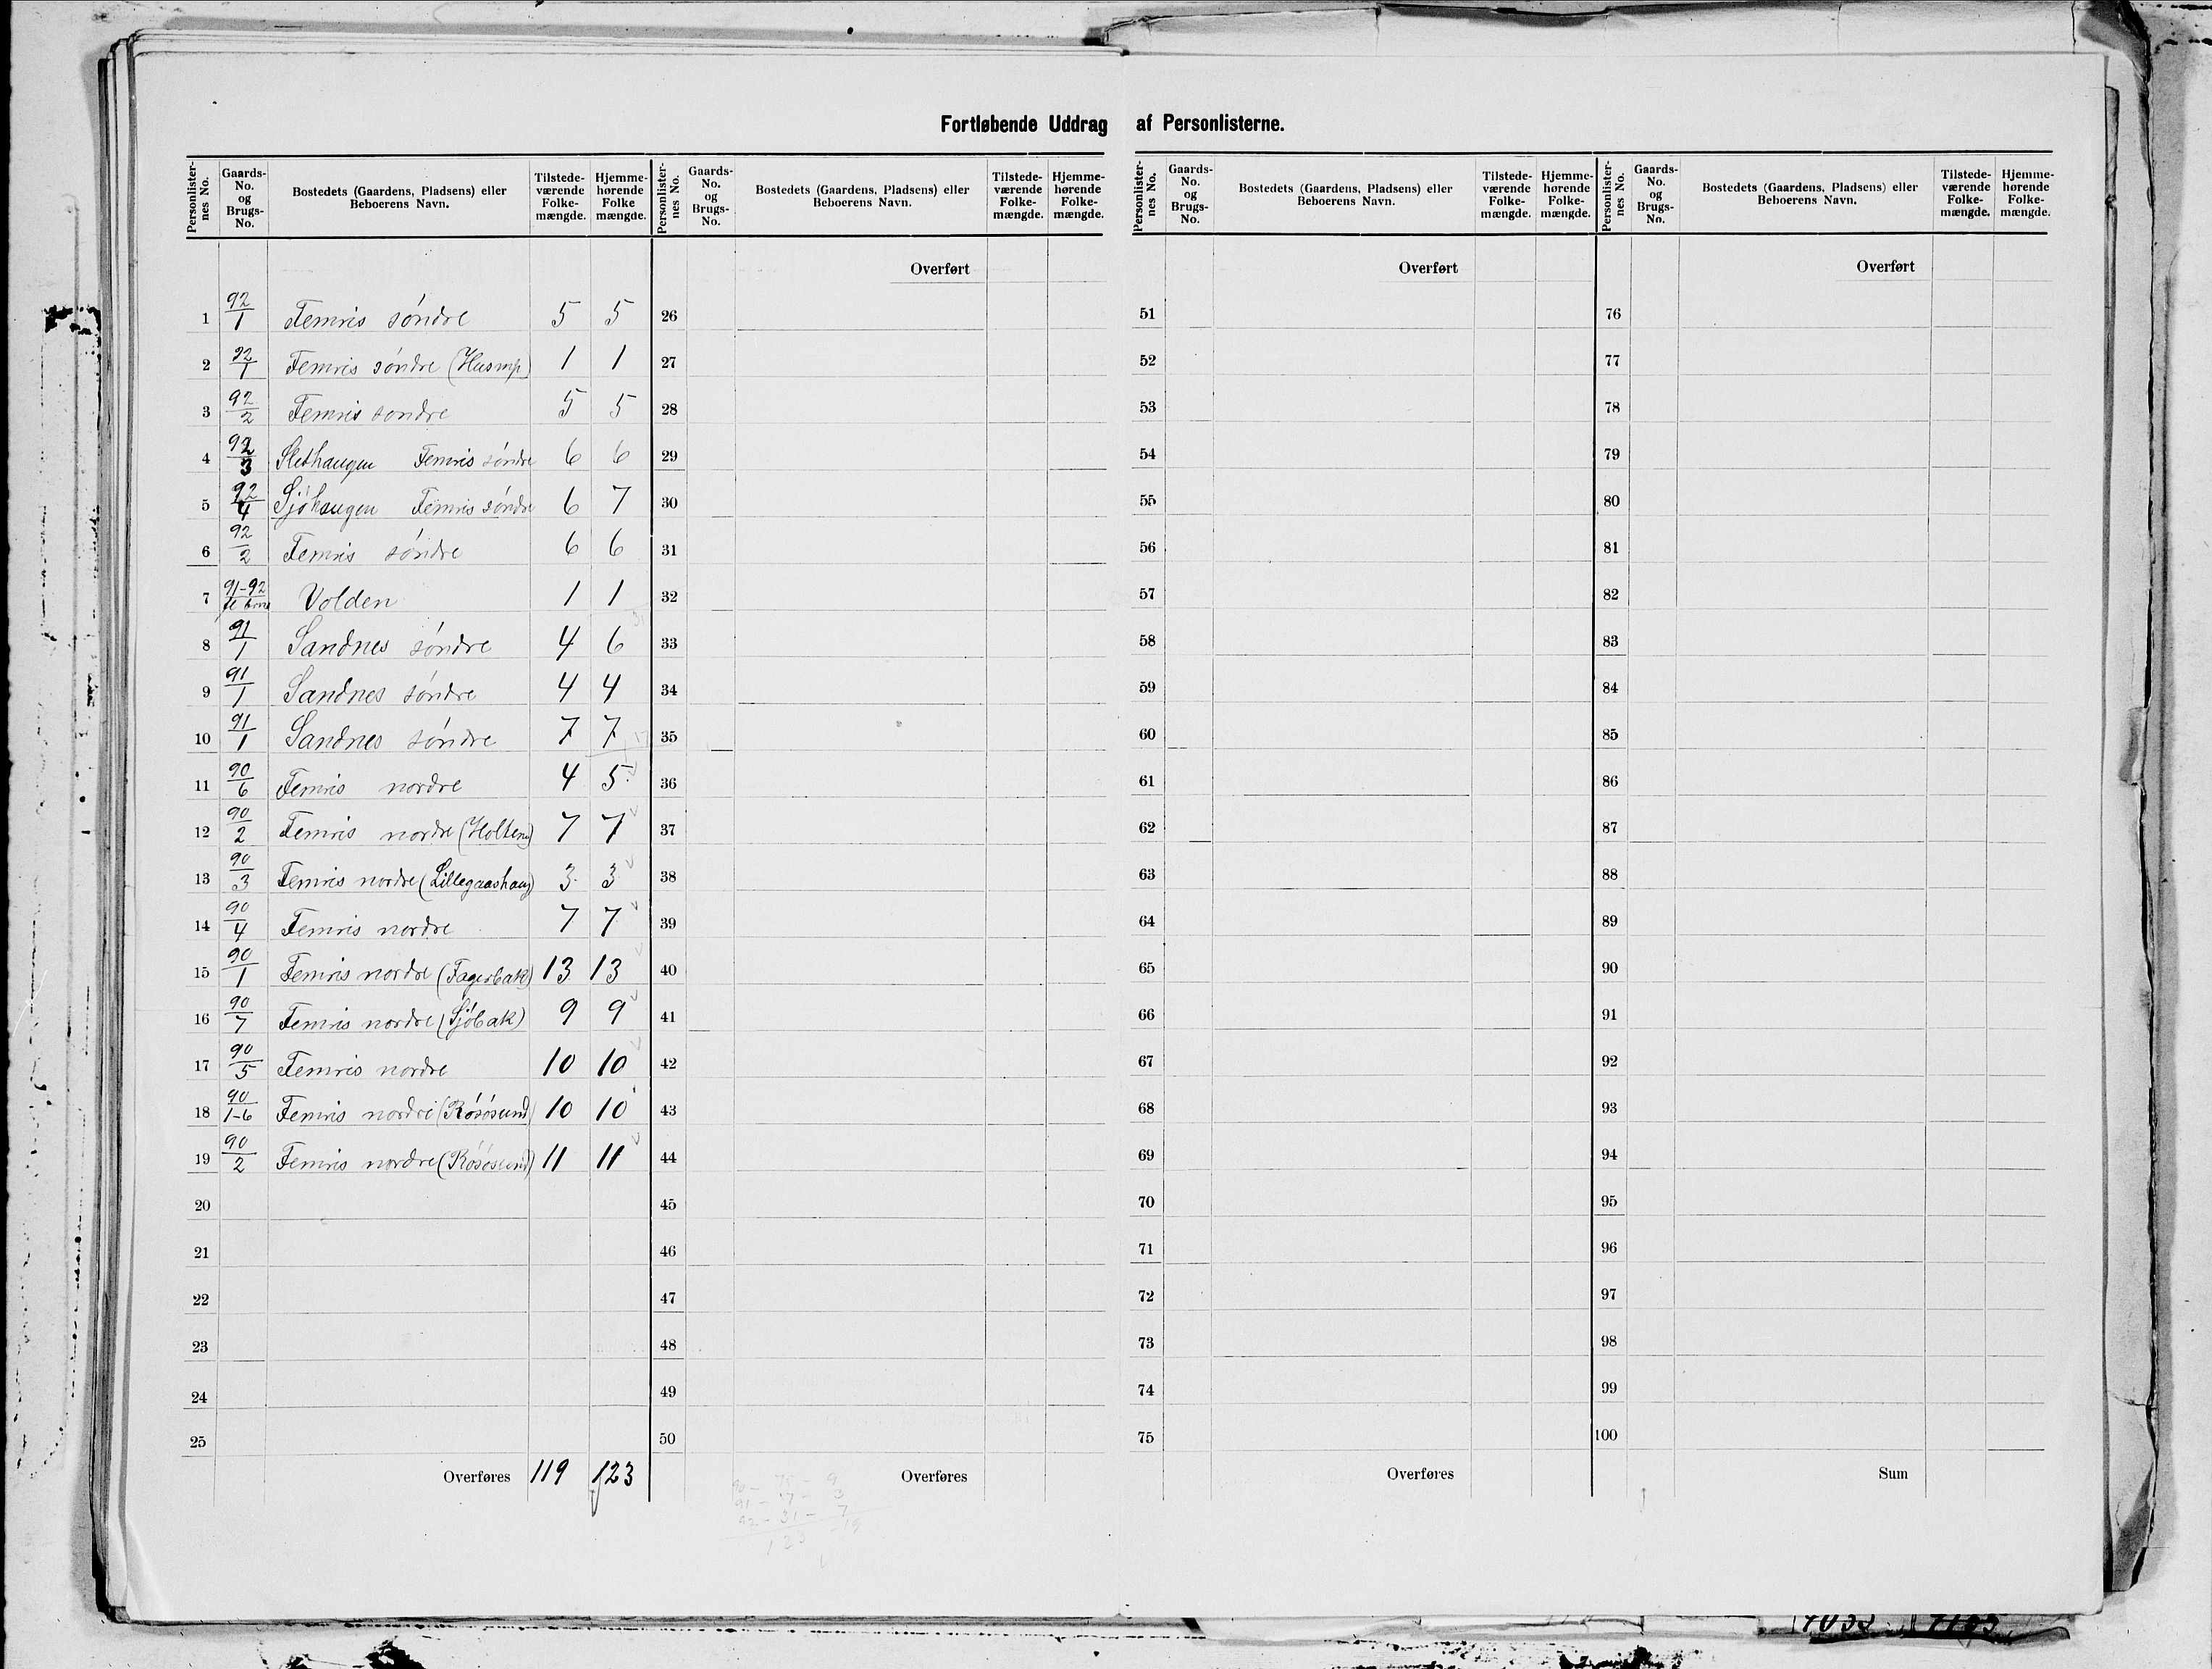 Fortløbende Uddrag af Personlisterne.
Personlister-nes No. | Gaards-No. og Brugs-No. | Bostedets (Gaardens, Pladsens) eller Beboerens Navn. | Tilstede-værende Folke-mængde. | Hjemme-hørende Folke mængde.
1 92/1 Femris søndre 5 5
2 92/1 Femris søndre (Husmp) 1 1
3 92/2 Femris søndre 5 5
4 92/3 Slethaugen Femris søndre 6 6
5 92/4 Sjøhaugen Femris søndre 6 7
6 92/2 Femris søndre 6 6
7 91-92 Volden 1 1
8 91/1 Sandnes søndre 4 6
9 91/1 Sandnes søndre 4 4
10 91/1 Sandnes søndre 7 7
11 90/6 Femris nordre 4 5
12 90/2 Femris nordre (Holten) 7 7
13 90/3 Femris nordre (Lillegaashaug) 3 3
14 90/4 Femris nordre 7 7
15 90/1 Femris nordre (Fagerbak) 13 13
16 90/7 Femris nordre (Sjøbak) 9 9
17 90/5 Femris nordre 10 10
18 90/1-6 Femris nordre (Røsøsund) 10 10
19 90/2 Femris nordre (Røsøsund) 11 11
20
21
22
23
24
25
Overføres 119 123
Personlister-nes No. | Gaards-No. og Brugs-No. | Bostedets (Gaardens, Pladsens) eller Beboerens Navn. | Tilstede-værende Folke-mængde. | Hjemme-hørende Folke-mængde.
Overført
26
27
28
29
30
31
32
33
34
35
36
37
38
39
40
41
42
43
44
45
46
47
48
49
50
Overføres
91 - 17 - 3
92 - 31 - 7
123 - 19
Personlister-nes No. | Gaards-No. og Brugs-No. | Bostedets (Gaardens, Pladsens) eller Beboerens Navn. | Tilstede-værende Folke-mængde. | Hjemme-hørende Folke-mængde.
Overført
51
52
53
54
55
56
57
58
59
60
61
62
63
64
65
66
67
68
69
70
71
72
73
74
75
Overføres
Personlister-nes No. | Gaards-No. og Brugs-No. | Bostedets (Gaardens, Pladsens) eller Beboerens Navn. | Tilstede-værende Folke-mængde. | Hjemme-hørende Folke-mængde.
Overført
76
77
78
79
80
81
82
83
84
85
86
87
88
89
90
91
92
93
94
95
96
97
98
99
100
Sum